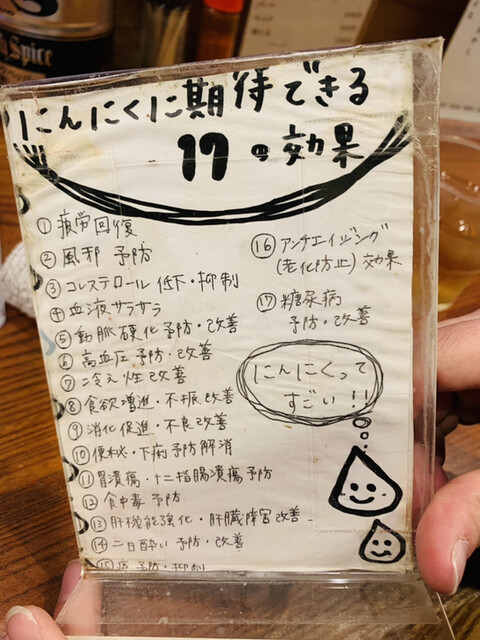 Spice
にんにくに期待できる
17の効果
①疲労回復
②風邪 予防
③コレステロール低下・抑制
④血液サラサラ
⑤動脈硬化予防・改善
⑥高血圧予防・改善
⑦冷え性改善
⑧食欲増進・不振改善
⑨消化促進・不良改善
⑩便秘・下痢予防解消
⑪胃潰瘍・十二指腸潰瘍予防
⑫食中毒予防
⑬肝機能強化・肝臓障害改善
⑭二日酔い予防・改善
⑮癌予防・抑制
⑯アンチエイジング
(老化防止)効果
⑰糖尿病
予防・改善
にんにくって
すごい!!